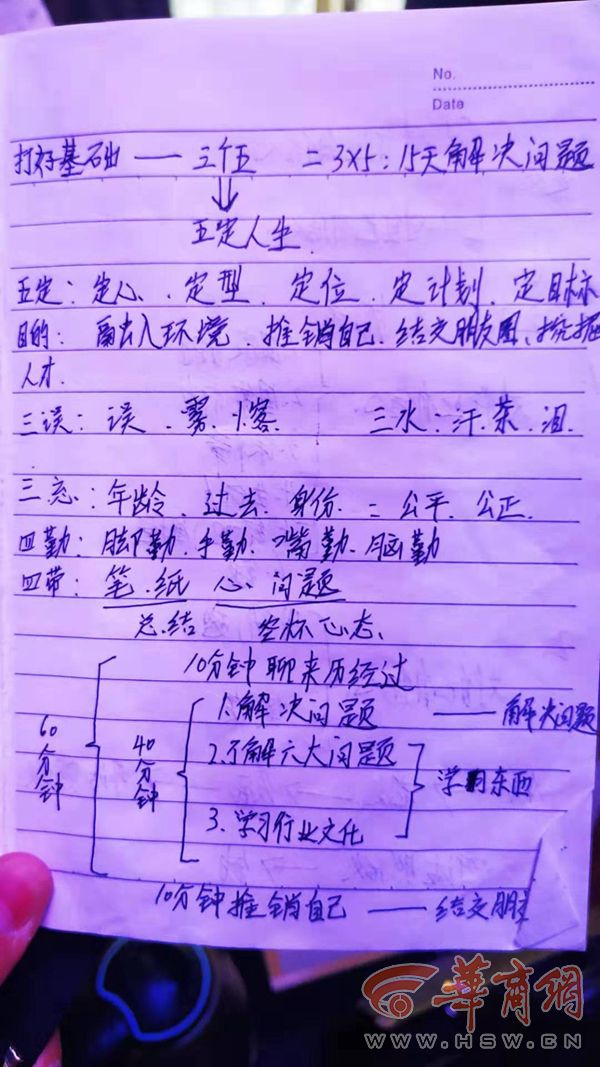 No.
Date
打好基础 — 三个五 = 3×5：15天解决问题
五定人生
五定：定心、定型、定位、定计划、定目标
目的：融入环境、推销自己、结交朋友圈、挖掘
人才.
三误：误、雾、悞 三水：汗、茶、泪.
三忘：年龄、过去、身份. = 公平、公正.
四勤：脚勤、手勤、嘴勤、脑勤
四带：笔、纸 心、问题
总结 空杯心态、
10分钟聊来历经过
60分钟
40分钟
1.解决问题 — 解决问题
2.了解六大问题
学习东西
3.学习行业文化
10分钟推销自己 — 结交朋
华商网
WWW.HSW.CN